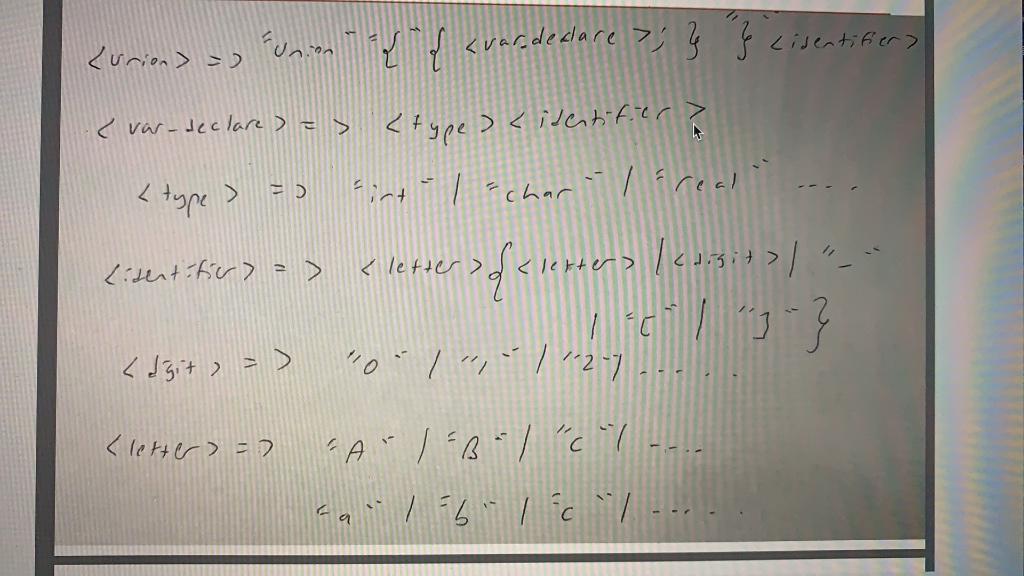 <union> => "union" "{" { <var_declare>; } "}" <identifier>
<var-declare> => <type> <identifier>
<type> => "int" | "char" | "real" ....
<identifier> => <letter> { <letter> | <digit> | "_"
| "[" | "]" }
<digit> => "0" | "1" | "2" | .....
<letter> => "A" | "B" | "C" | ....
"a" | "b" | "c" | .....